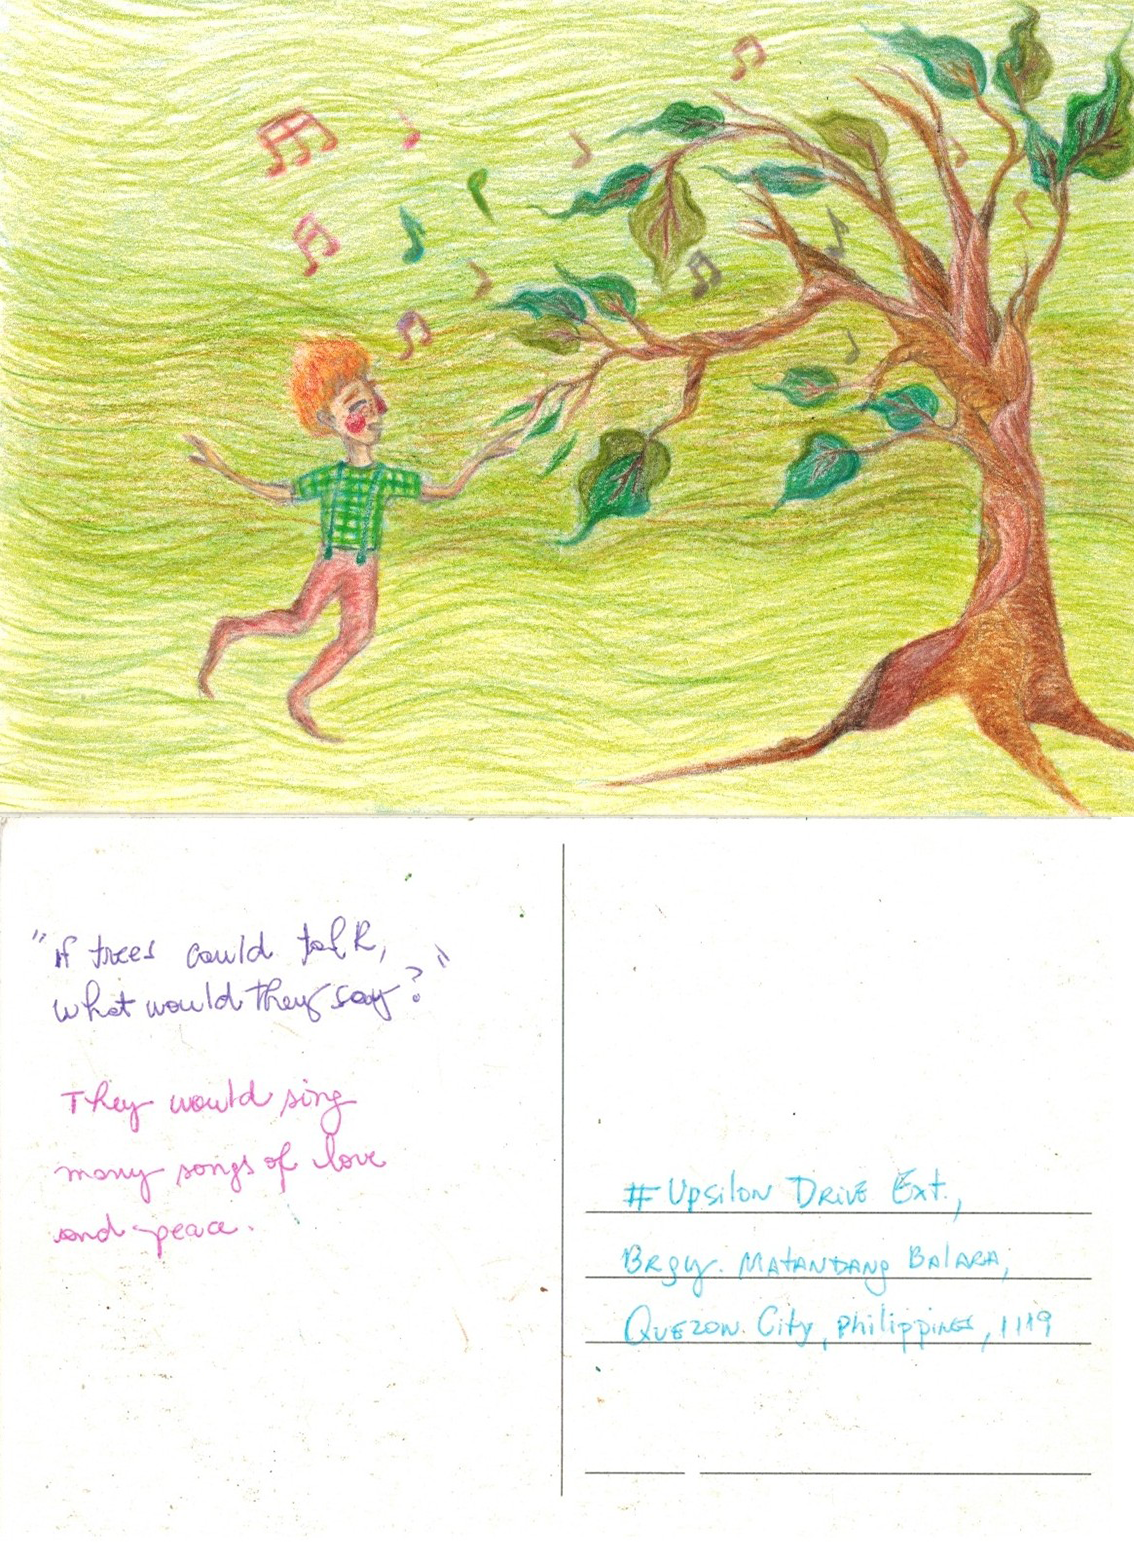 "If trees could talk,
what would they say?"
They would sing
many songs of love
and peace.
# Upsilon Drive Ext.,
Brgy. Matandang Balara,
Quezon City, Philippines, 1119